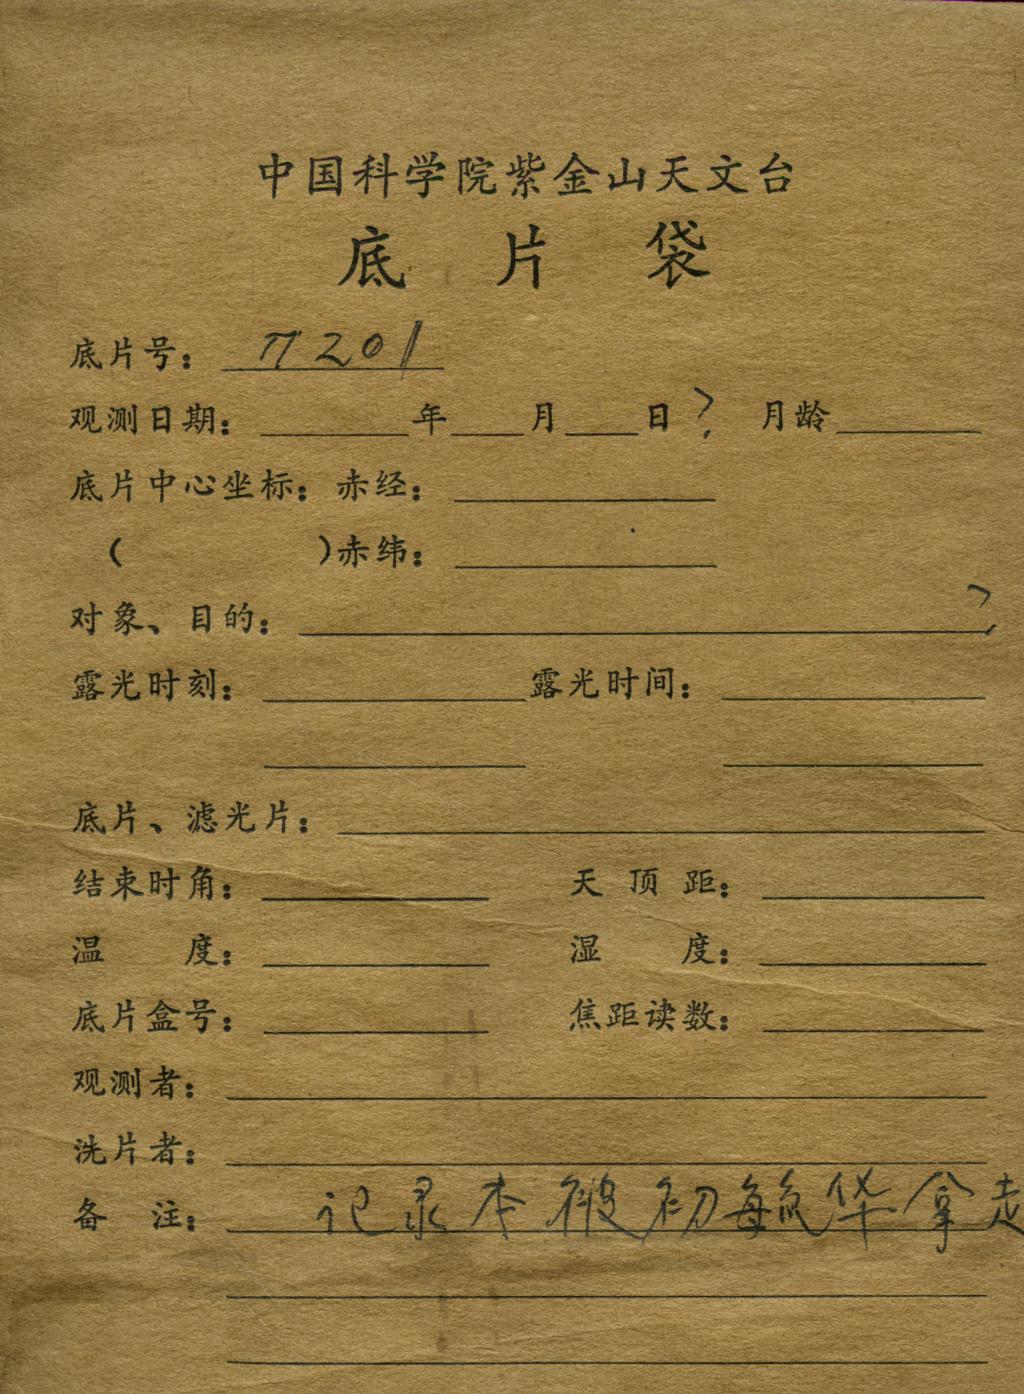 中国科学院紫金山天文台
底片袋
底片号： П201
观测日期： 年 月 日 ? 月龄
底片中心坐标：赤经：
( )赤纬：
对象、目的： ?
露光时刻： 露光时间：
底片、滤光片：
结束时角： 天顶距：
温度： 湿度：
底片盒号： 焦距读数：
观测者：
洗片者：
备注： 记录本被初毓华拿走